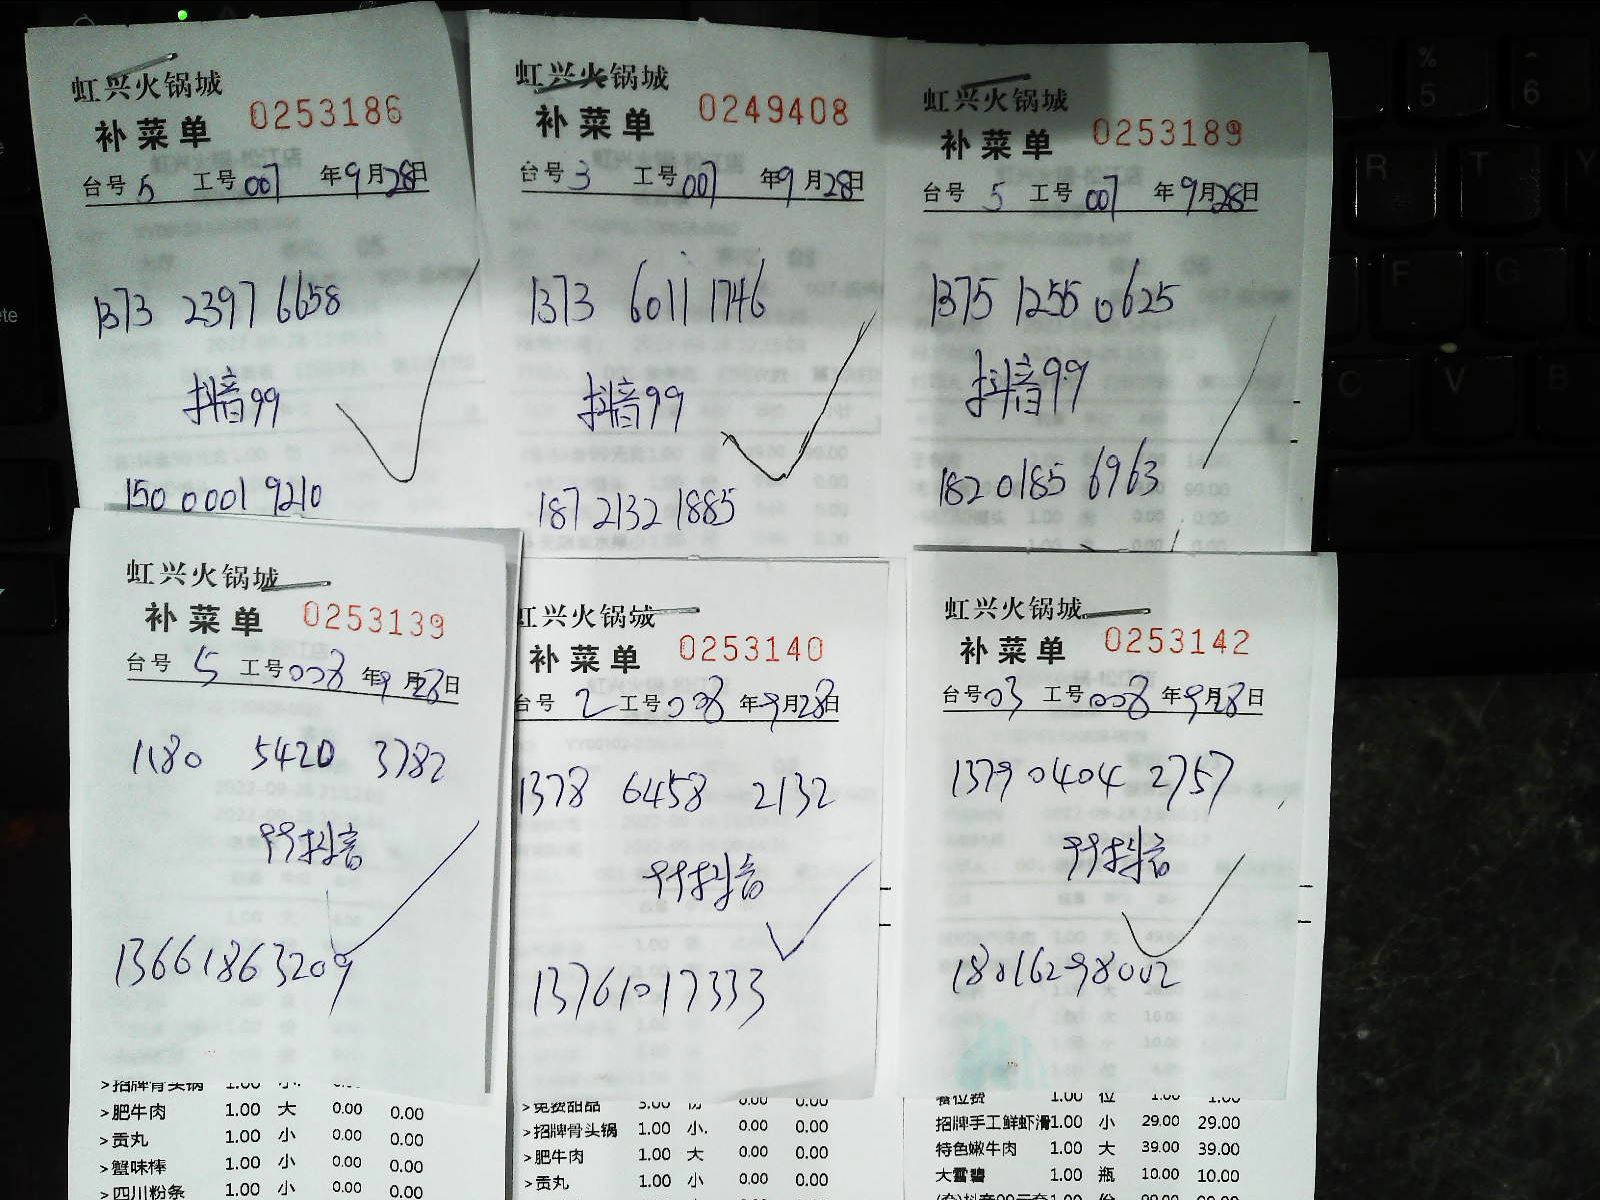 虹兴火锅城
补菜单 0253186
台号 5 工号 007 年 9 月 28 日
1373 2397 6658
抖音99
150 0001 9210
虹兴火锅城
补菜单 0249408
台号 3 工号 007 年 9 月 28 日
1373 6011 1746
抖音99
187 2132 1885
虹兴火锅城
补菜单 0253189
台号 5 工号 007 年 9 月 28 日
1375 1255 0625
抖音99
182 0185 6963
虹兴火锅城
补菜单 0253139
台号 5 工号 008 年 9 月 28 日
1180 5420 3782
99抖音
13661863209
>招牌骨头锅 1.00 小.
>肥牛肉 1.00 大 0.00 0.00
>贡丸 1.00 小 0.00 0.00
>蟹味棒 1.00 小 0.00 0.00
>四川粉条 1.00 小 0.00 0.00
虹兴火锅城
补菜单 0253140
台号 2 工号 008 年 9 月 28 日
1378 6458 2132
99抖音
13761017333
>免费甜品 3.00 份 0.00 0.00
>招牌骨头锅 1.00 小. 0.00 0.00
>肥牛肉 1.00 大 0.00 0.00
>贡丸 1.00 小 0.00 0.00
虹兴火锅城
补菜单 0253142
台号 03 工号 008 年 9 月 28 日
1379 0404 2757
99抖音
18016298002
餐位费 1.00 位 1.00 1.00
招牌手工鲜虾滑1.00 小 29.00 29.00
特色嫩牛肉 1.00 大 39.00 39.00
大雪碧 1.00 瓶 10.00 10.00
(套)抖音99元套1.00 份 99.00 99.00